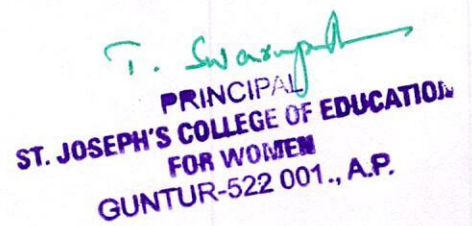 T.
PRINCIPAL
ST. JOSEPH'S COLLEGE OF EDUCATION
FOR WOMEN
GUNTUR-522 001., A.P.